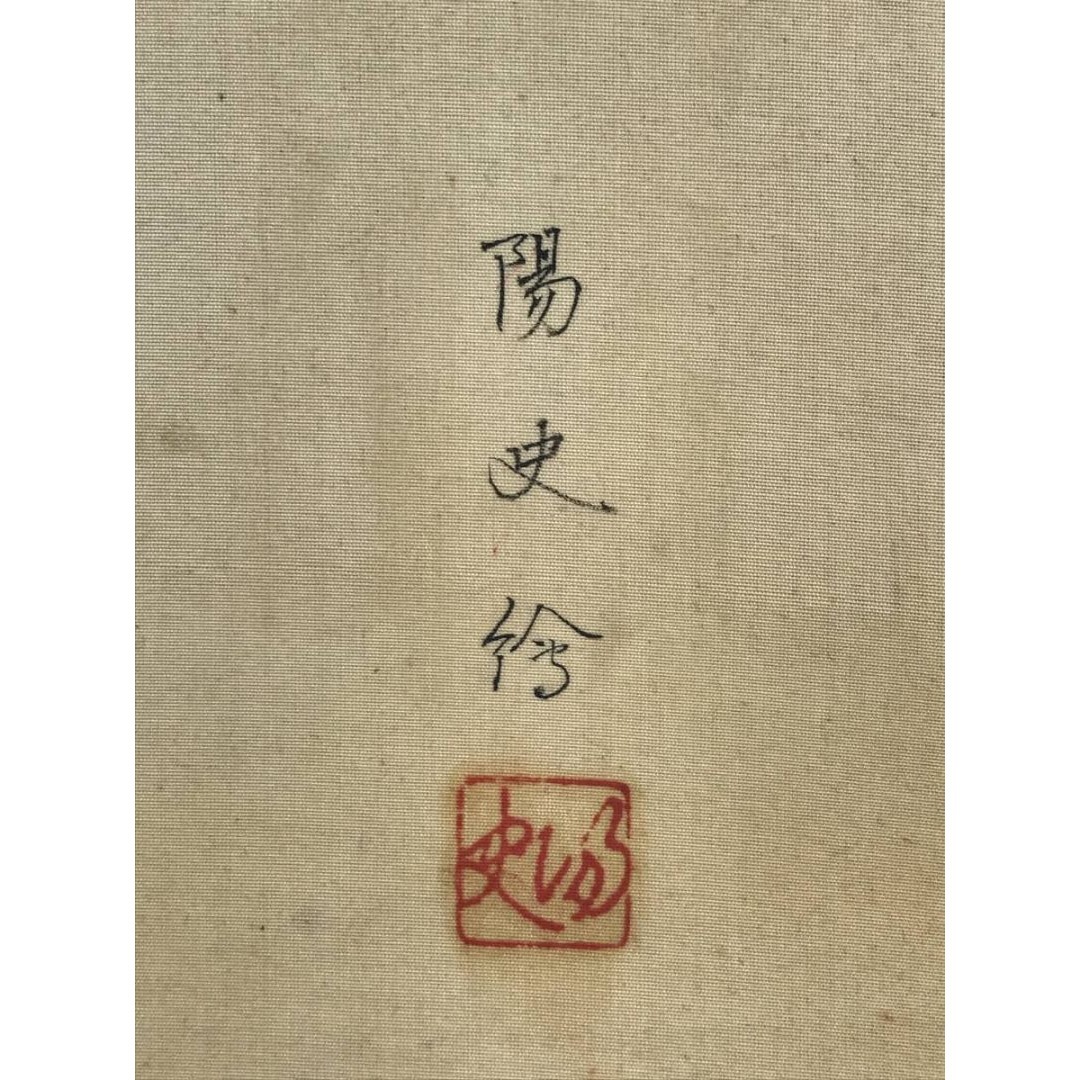 陽史繪
陽史